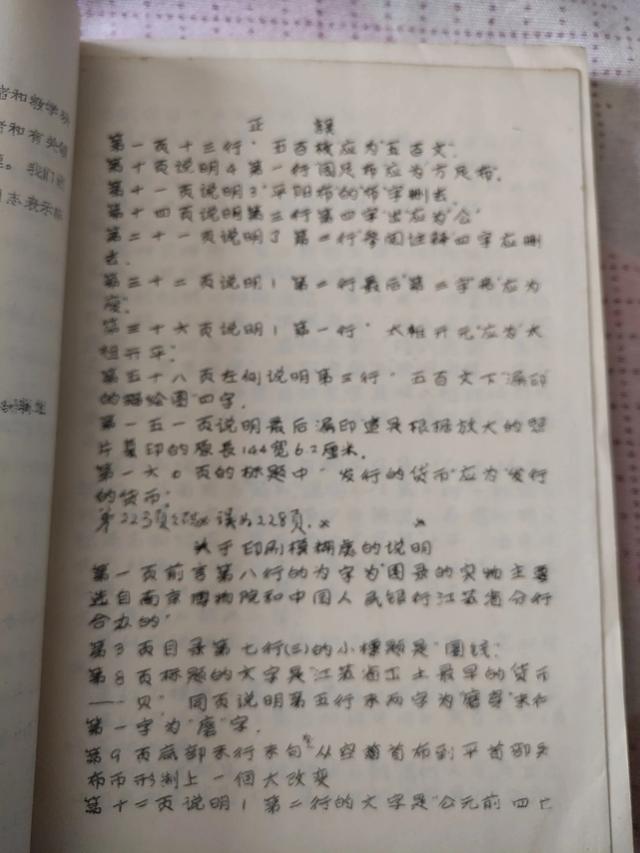 者和教学
和有关
。我们
同志表示
正 误
第一页十三行"五百钱应为"五百文"。
第十页说明4第一行"圆足布应为"方足布"。
第十一页说明3"平阳布的"布"字删去
第十四页说明第三行第四字"出应为"公"
第二十一页说明了第一行"参阅注释"四字应删
去。
第三十二页说明1第二行最后第二字应为
废"。
第三十六页说明1第一行"大祖开元"应为"太
祖开平"。
第五十八页左侧说明第三行"五百文下"漏印
的描绘图"四字。
第一五一页说明最后漏印"这是根据放大的照
片复印的原长144宽6.2厘米。
第一六0页的标题中"发行的货币"应为"发行
的货币"。
第223页 误为228页。
关于印刷模糊处的说明
第一页前言第八行的为字为"图录的实物主要
选自南京博物院和中国人民银行江苏省分行
合办的"
第3页目录第七行(三)的小标题是"圆钱"。
第8页标题的文字是"江苏省出土最早的货币
——贝" 同页说明第五行末两字为"磨背"末行
第一字为"磨"字。
第9页底部末行末句"从空首布到平首布
布币形制上一個大改变
第十二页说明1第二行的文字是"公元前四七